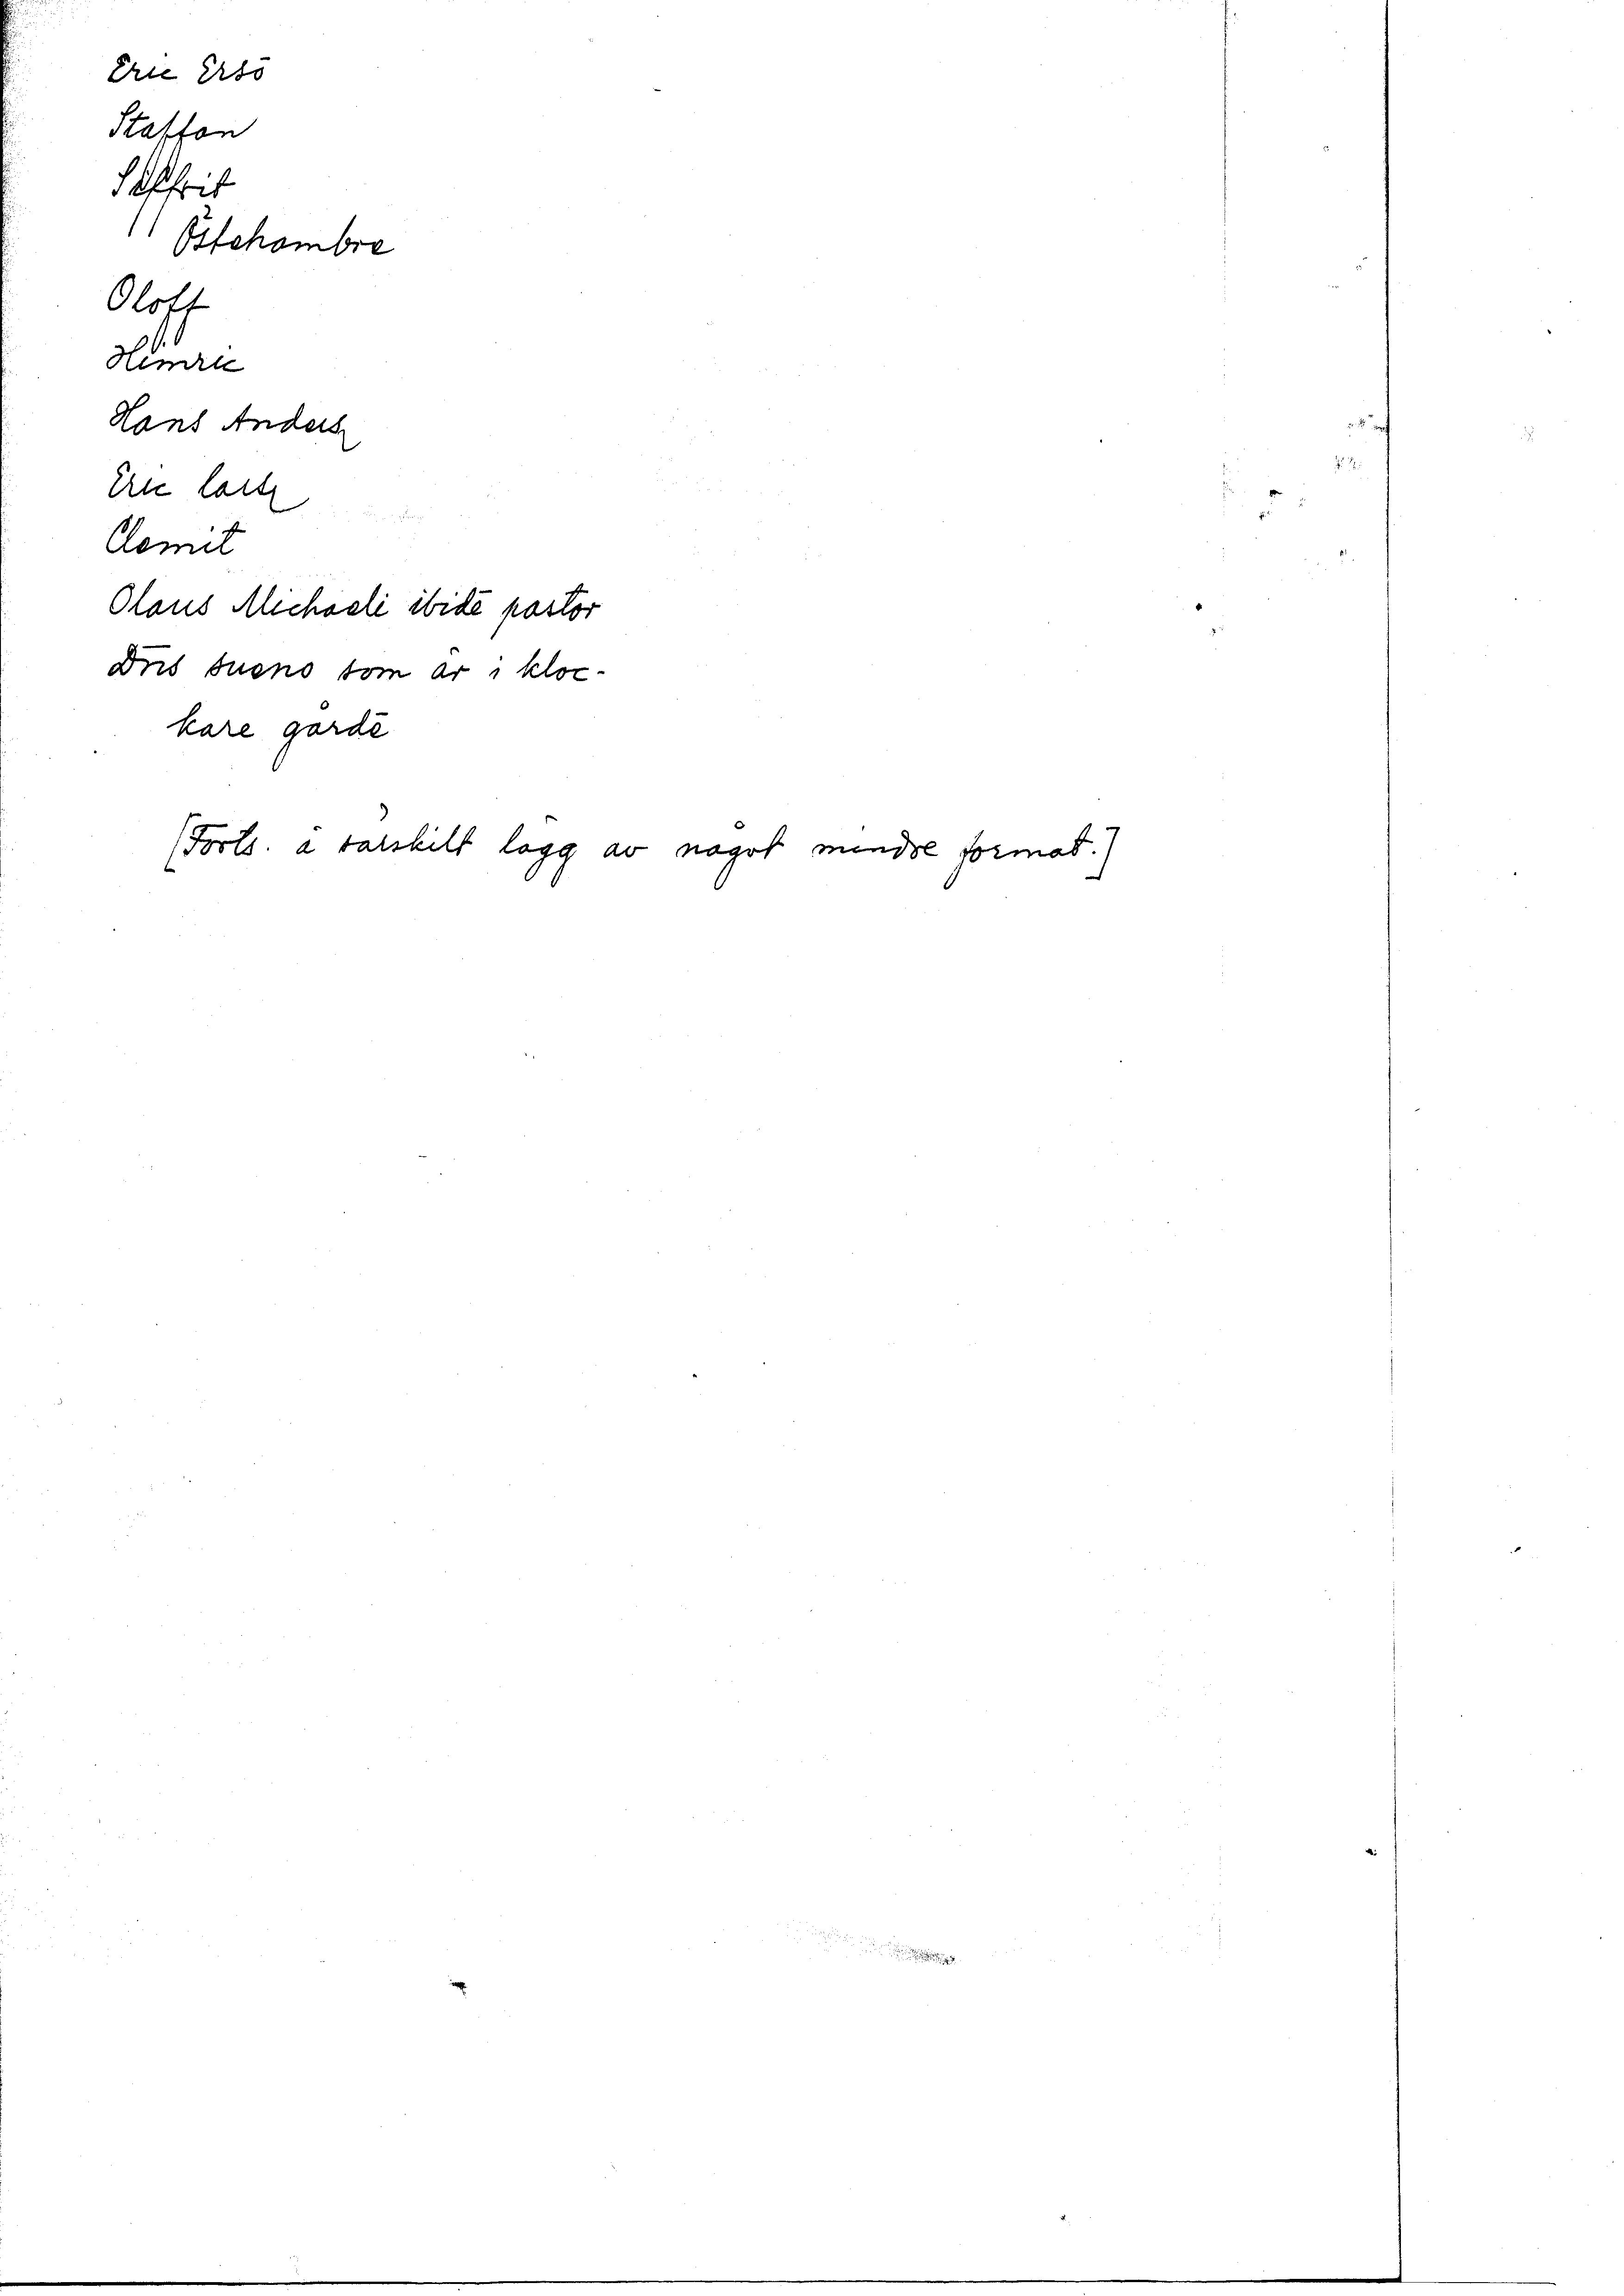 Eric Ersö
Staffan
Seffrit
Östehambre
Oloff
Hinric
Hans Anders
Eric lars
Clemit
Olaus Michaeli ibidē pastor
Dns sueno som är i kloc-
kare gårdē
(Forts. å särskilt lägg av något mindre format.)